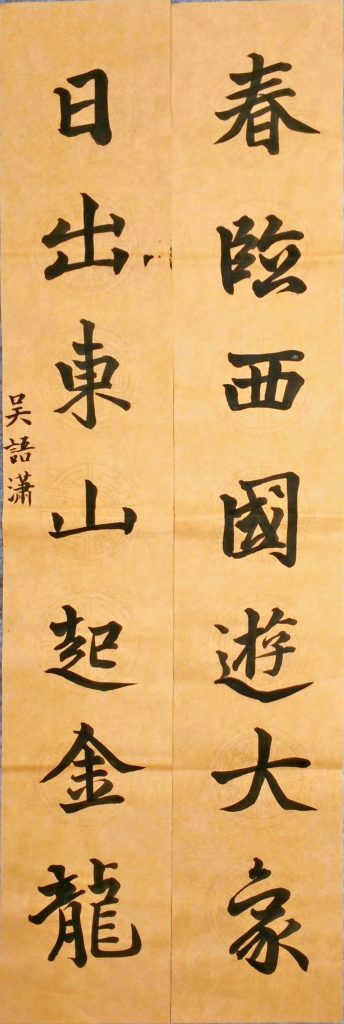 春臨西國遊大象
日出東山起金龍
吳語瀟